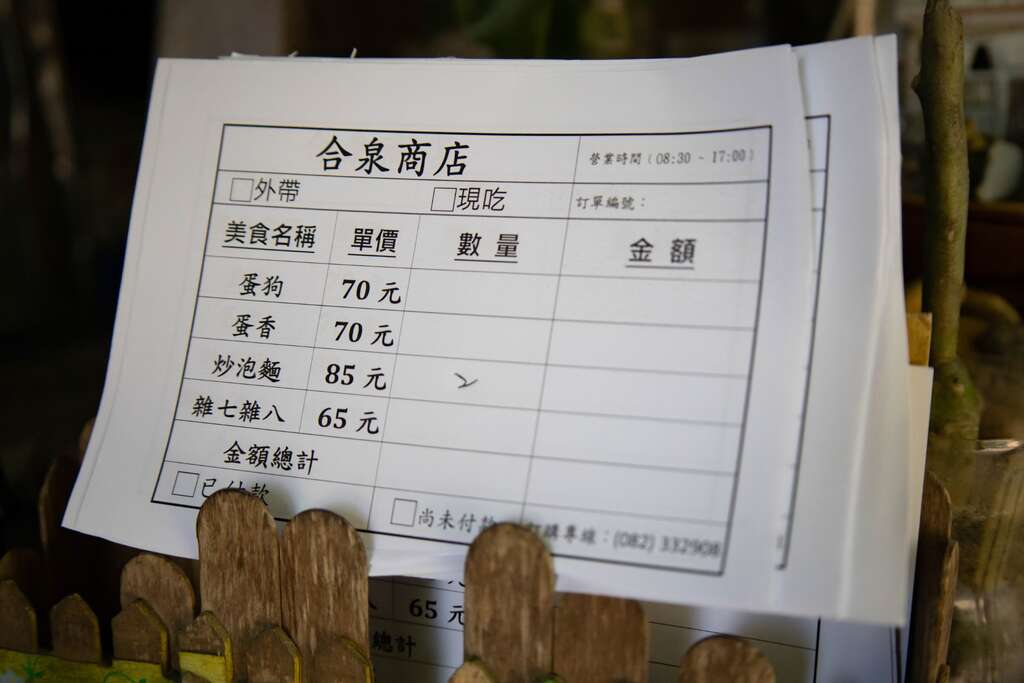 合泉商店 營業時間（08:30 ~ 17:00）
□外帶 □現吃 訂單編號：
美食名稱 單價 數量 金額
蛋狗 70 元
蛋香 70 元
炒泡麵 85 元 2
雜七雜八 65 元
金額總計
□已付款 □尚未付款 訂購專線：(082) 332908
65 元
總計